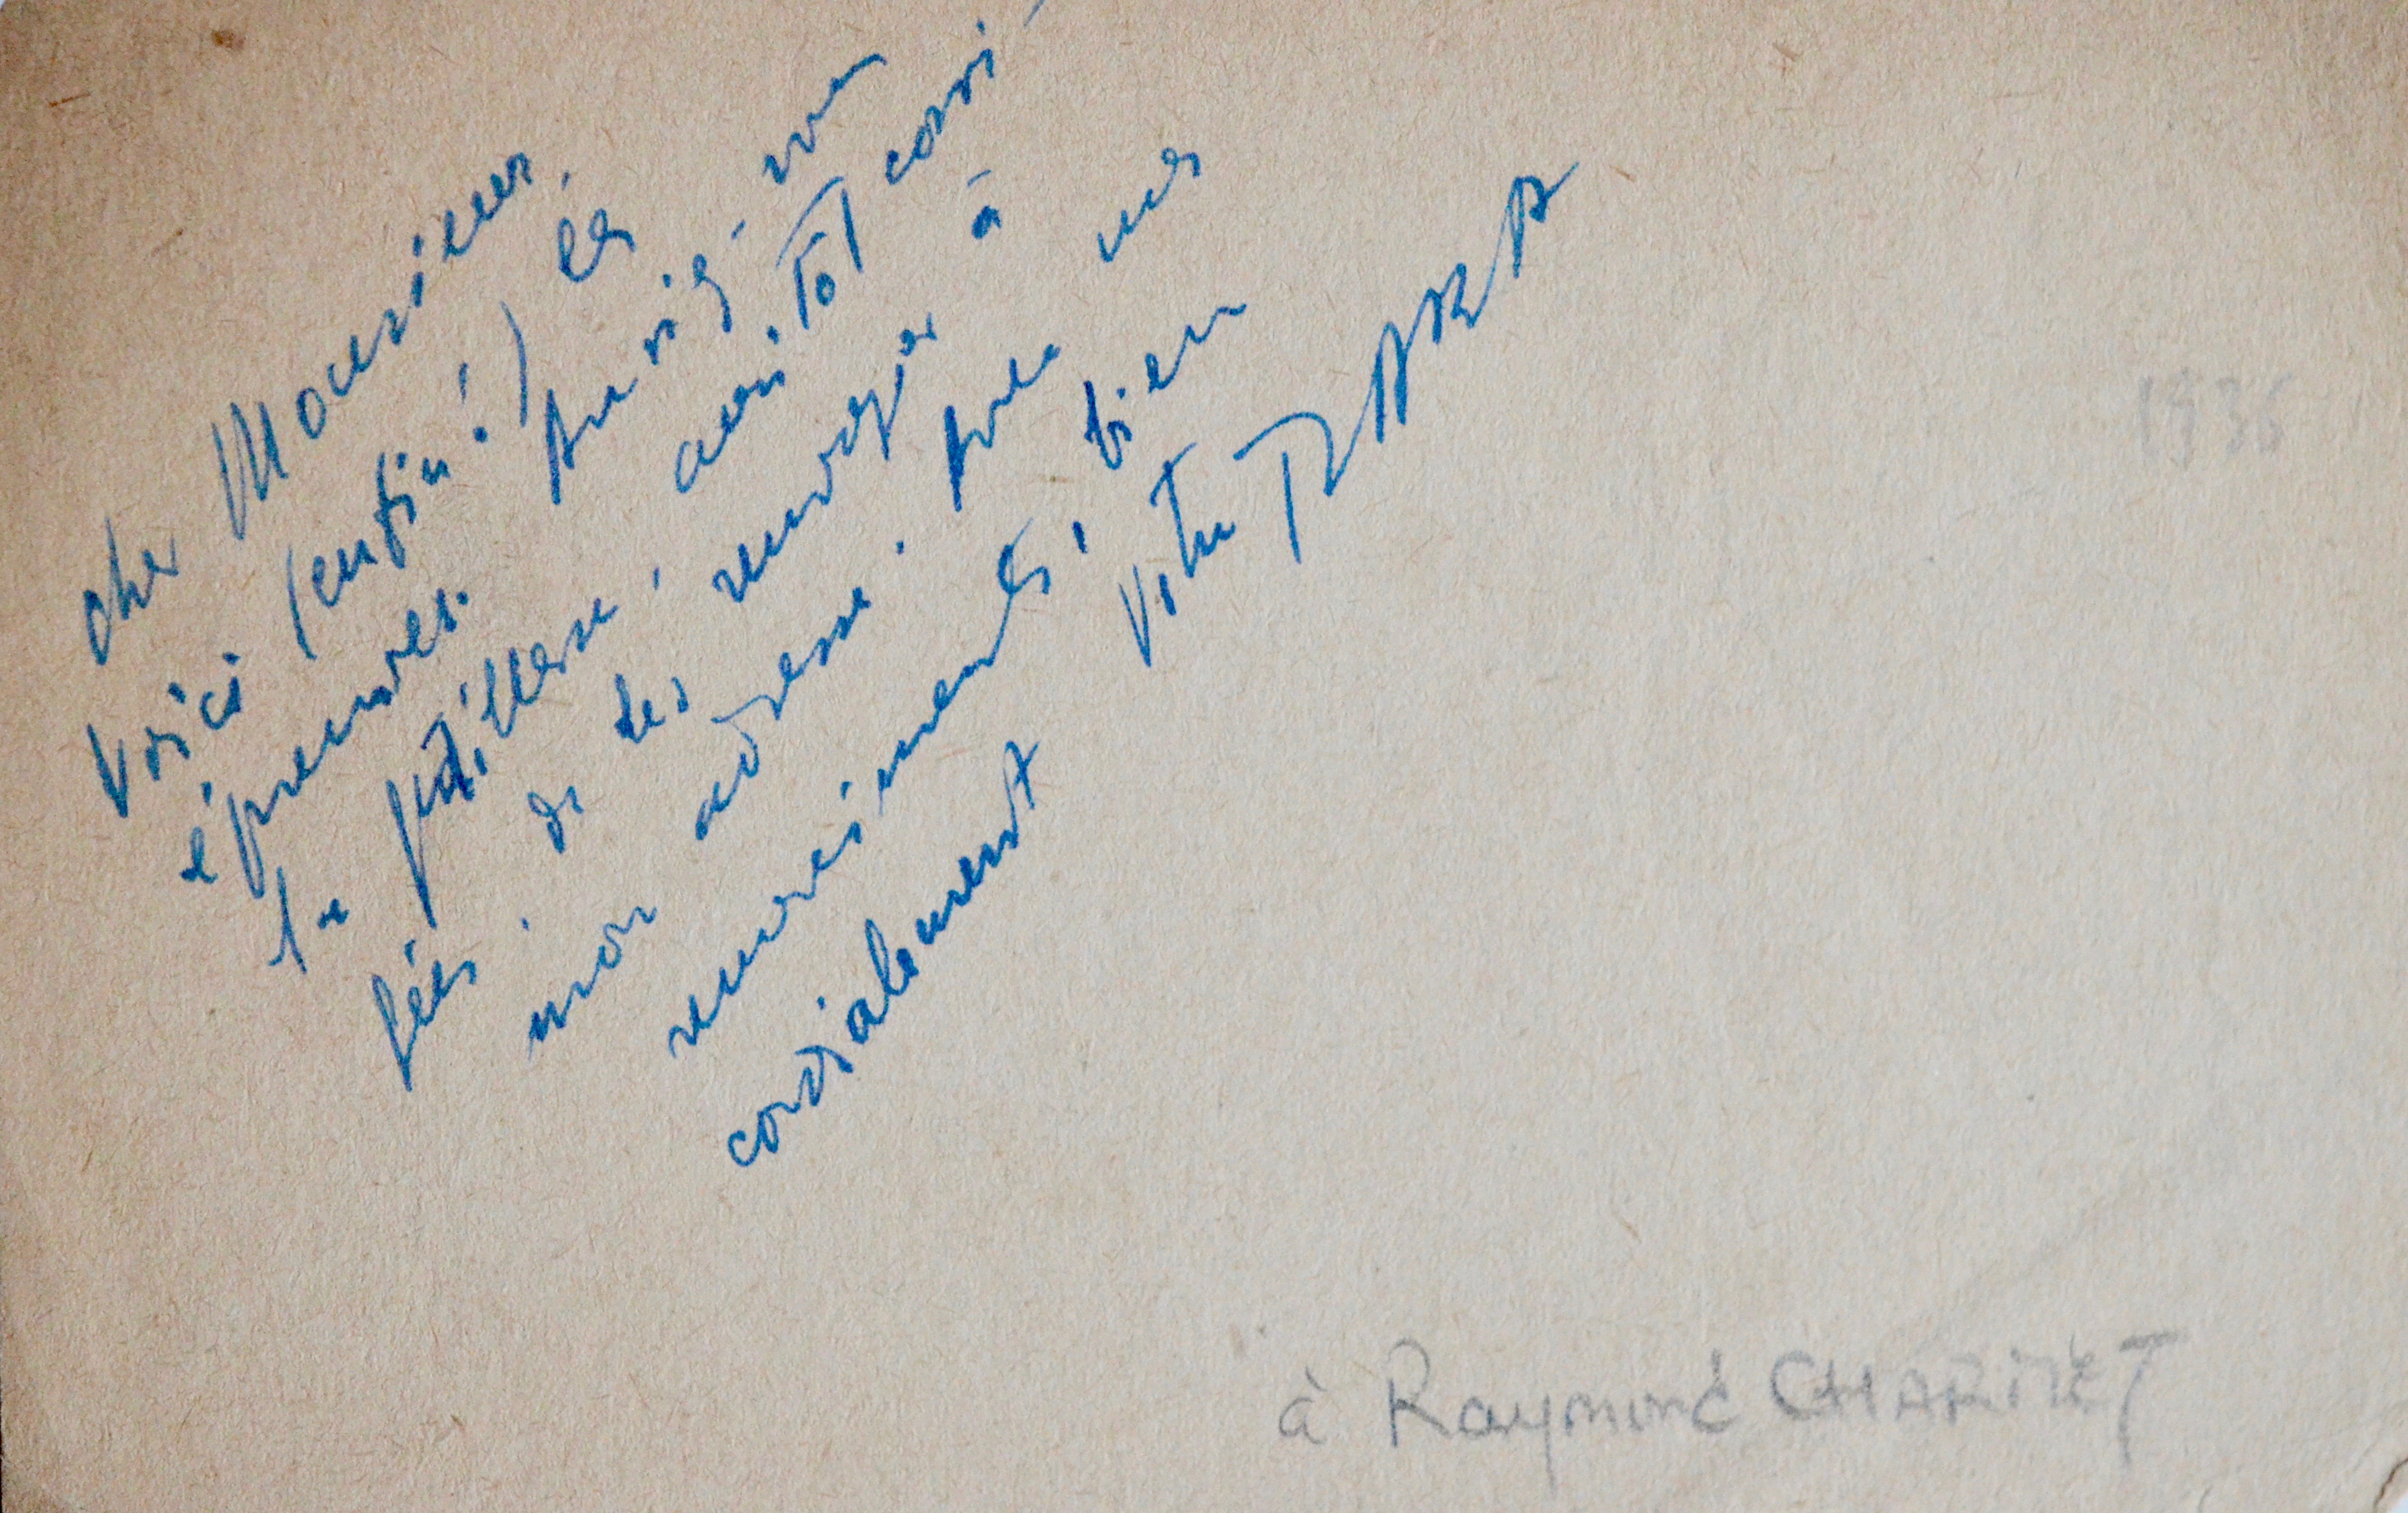 cher Monsieur,
Voici (enfin!) les
épreuves. Auriez-vous
la gentillesse, aussitôt corri-
gées, de les renvoyer à
mon adresse. Avec mes
remerciements, bien
cordialement
Votre TZARA
1936
à Raymond CHARMET